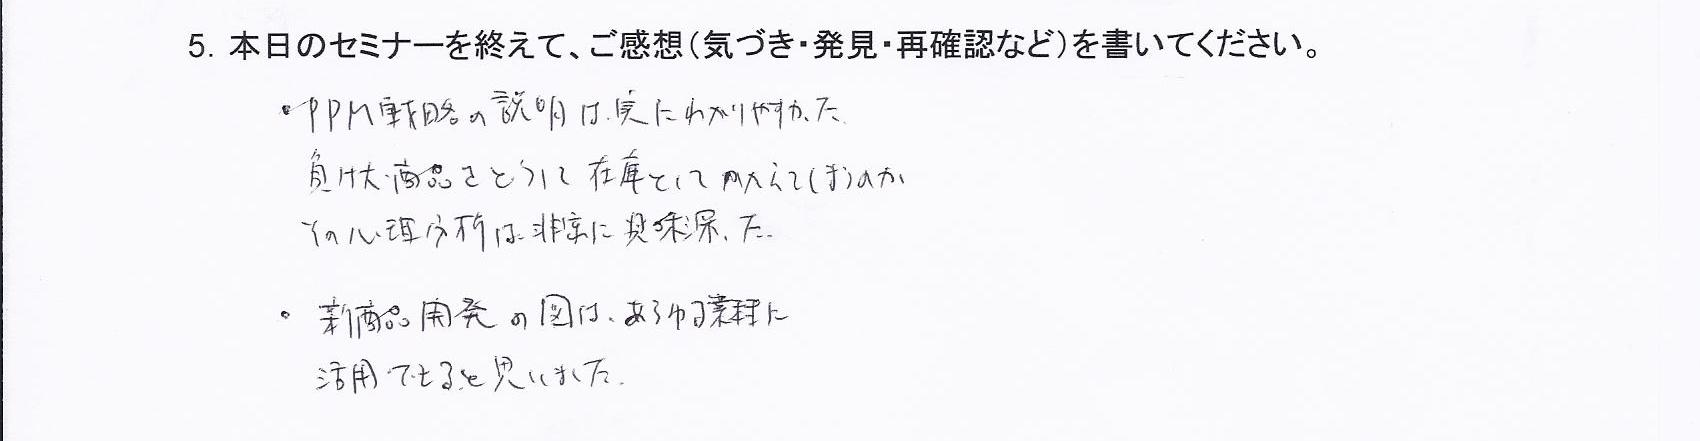 5. 本日のセミナーを終えて、ご感想（気づき・発見・再確認など）を書いてください。
・PPM戦略の説明は実にわかりやすかった。
負け犬商品をどうして在庫としてかかえてしまうのか
その心理分析は非常に興味深かった。
・新商品開発の図は、あらゆる業種に
活用できると思いました。